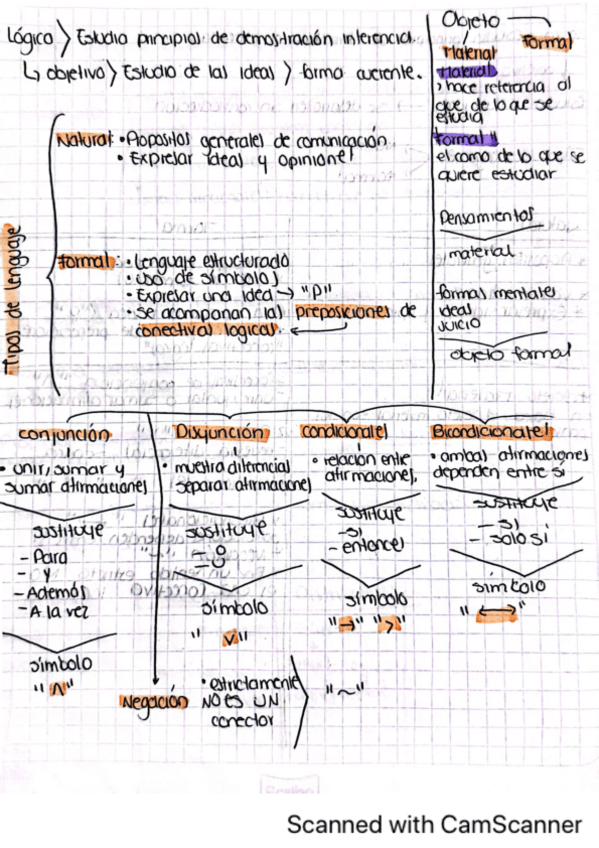 Lógica > Estudia principios de demostración inferencia.
↳ objetivo > Estudio de las ideas > forma
Objeto
Material
Formal
Material
> hace referencia al
que de lo que se
estudia
Formal
el como de lo que se
quiere estudiar
Pensamientos
material
formas mentales
ideas
JUICIO
objeto formal
Tipos de lenguaje
Natural: • Propositos generales de comunicación
• Expresar ideas y opiniones
Formal: • Lenguaje estructurado
• uso de símbolos
• Expresar una idea → "P"
• se acompañan las preposiciones de
conectivas logicas.
conjunción
• unir, sumar y
sumar afirmaciones
sustituye
- Para
- y
- Además
- A la vez
símbolo
"Λ"
Disyunción
• muestra diferencias
separar afirmaciones
sustituye
- o
- U
símbolo
"v"
condicionales
• relación entre
afirmaciones.
sustituye
- si
- entonces
símbolo
"→" ">"
Bicondicionales
• ambas afirmaciones
dependen entre sí
sustituye
- si
- solo si
simbolo
"↔"
Negación
• estrictamente
NO ES UN
conector
"~"
Scanned with CamScanner